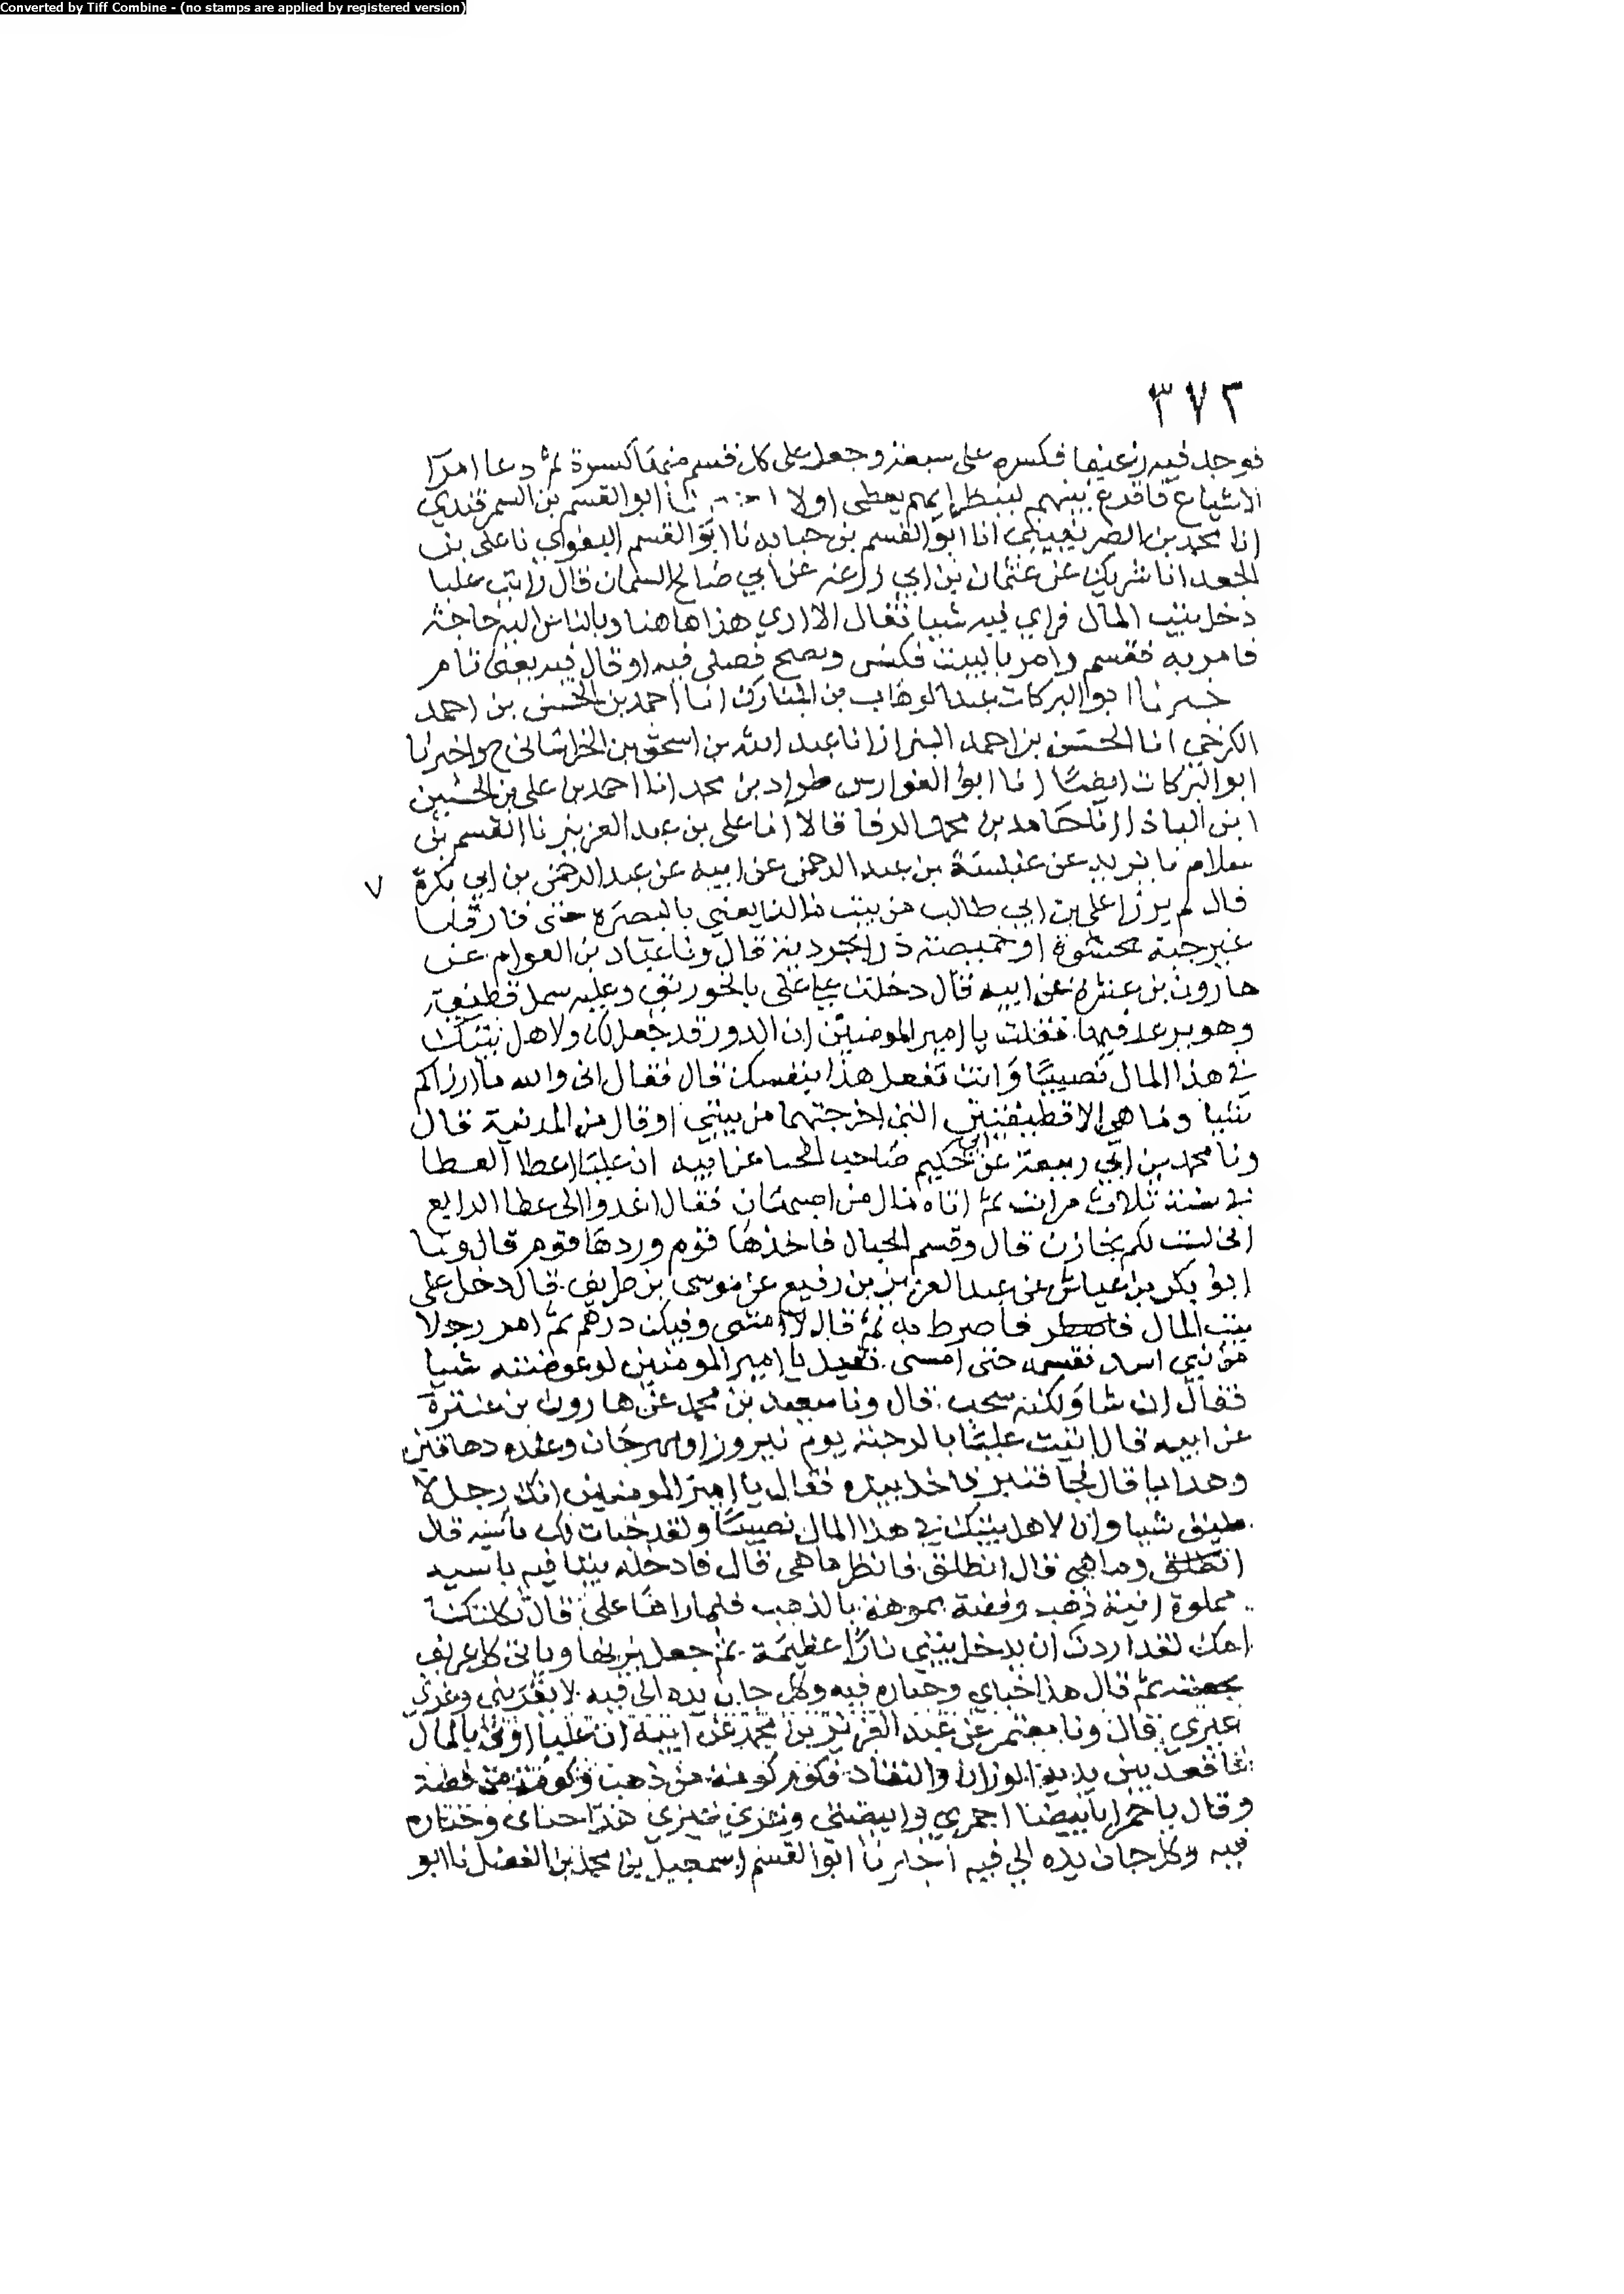 Converted by Tiff Combine - (no stamps are applied by registered version)
٣٧٢
فوجد فيه رغيفا فكسره على سبعة وجعل على كل قسم منها كسرة ثم دعا امرا
الاشياع فاقرع بينهم لينظر ايهم يعطى اولا ابو القسم بن السمرقندي
انا محمد الصريفيني انا ابو القسم بن حبابه نا ابو القسم البغوي نا على بن
الجعد انا شريك عن عثمان بن ابي زرعه عن ابي صالح السمان قال رايت عليا
دخل بيت المال فراى فيه شيا فقال الا ارى هذا هاهنا وبالناس اليه حاجة
فامر به فقسم وامر بالبيت فكنس ونضح فصلى فيه او قال فيه يعنى نام
خبرنا ابو البركات عبد الوهاب بن المبارك انا احمد بن الحسن بن احمد
الكرخي انا الحسن بن احمد البزاز انا عبد الله بن اسحق بن الخراساني ح واخبرنا
ابو البركات ايضا انا ابو الفوارس طراد بن محمد انا احمد بن على بن الحسين
ابن الباذا انا حامد بن محمد الرفا قالا انا على بن عبد العزيز نا القسم بن
سلام نا يزيد عن عنبسة بن عبد الرحمن عن ابيه عن عبد الرحمن بن ابي بكرة ٧
قال لم يرزا على بن ابي طالب من بيت مالنا يعني بالبصره حتى فارقنا
غير جبة محشوة او خميصة درابجردية قال ونا عباد بن العوام عن
هارون بن عنترة عن ابيه قال دخلت على على بالخورنق وعليه سمل قطيفة
وهو يرعد فيها فقلت يا امير المومنين ان الله قد جعل لك ولاهل بيتك
في هذا المال نصيبا وانت تفعل هذا بنفسك قال فقال انى والله ما ارزاكم
شيا وما هي الا قطيفتي التي اخرجتها من بيتي او قال من المدينة قال
ونا محمد بن ابي ربيعة عن ابي حكيم صاحب الحنا عن ابيه ان عليا اعطا العطا
في سنة ثلاث مرات ثم اتاه مال من اصبهان فقال اغدوا الى عطا الرابع
انى لست لكم بخازن قال وقسم الحبال فاخذها قوم وردها قوم قال ونا
ابو بكر بن عياش عن عبد العزيز بن رفيع عن موسى بن طريف قال دخل على
بيت المال فاضرط به ثم قال لا امسى وفيك درهم ثم امر رجلا
من بني اسد فقسمه حتى امسى فقيل يا امير المومنين لو عوضته شيا
فقال ان شا ولكنه سحت قال ونا سعيد بن محمد عن هارون بن عنترة
عن ابيه قال اتيت عليا بالرحبة يوم نيروز او مهرجان وعنده دهاقين
وهدايا قال فجا قنبر فاخذ بيده فقال يا امير المومنين انك رجل لا
تليق شيا وان لاهل بيتك في هذا المال نصيبا ولقد خبات لك خبيئة قال
وما هي قال انطلق فانظر ما هي قال فادخله بيتا فيه باسنة
مملوة انية ذهب وفضة مموهة بالذهب فلما راها على قال ثكلتك
امك لقد اردت ان يدخل بيتي نارا عظيمة ثم جعل يزنها وياتى كل عريف
بحصته ثم قال هذا جناي وخياره فيه وكل جان يده الى فيه لا تغريني وغرى
غيري قال ونا معتمر عن عبد العزيز بن محمد عن ابيه ان عليا اوتى بالمال
فاقعد بين يديه الوزان والنقاد فكوم كومة من ذهب وكومة من فضة
وقال يا حمرا يا بيضا احمري وابيضي وغري غيري هذا جناي وخياره
فيه وكل جان يده الى فيه اخبرنا ابو القسم اسمعيل بن محمد بن الفضل نا ابو